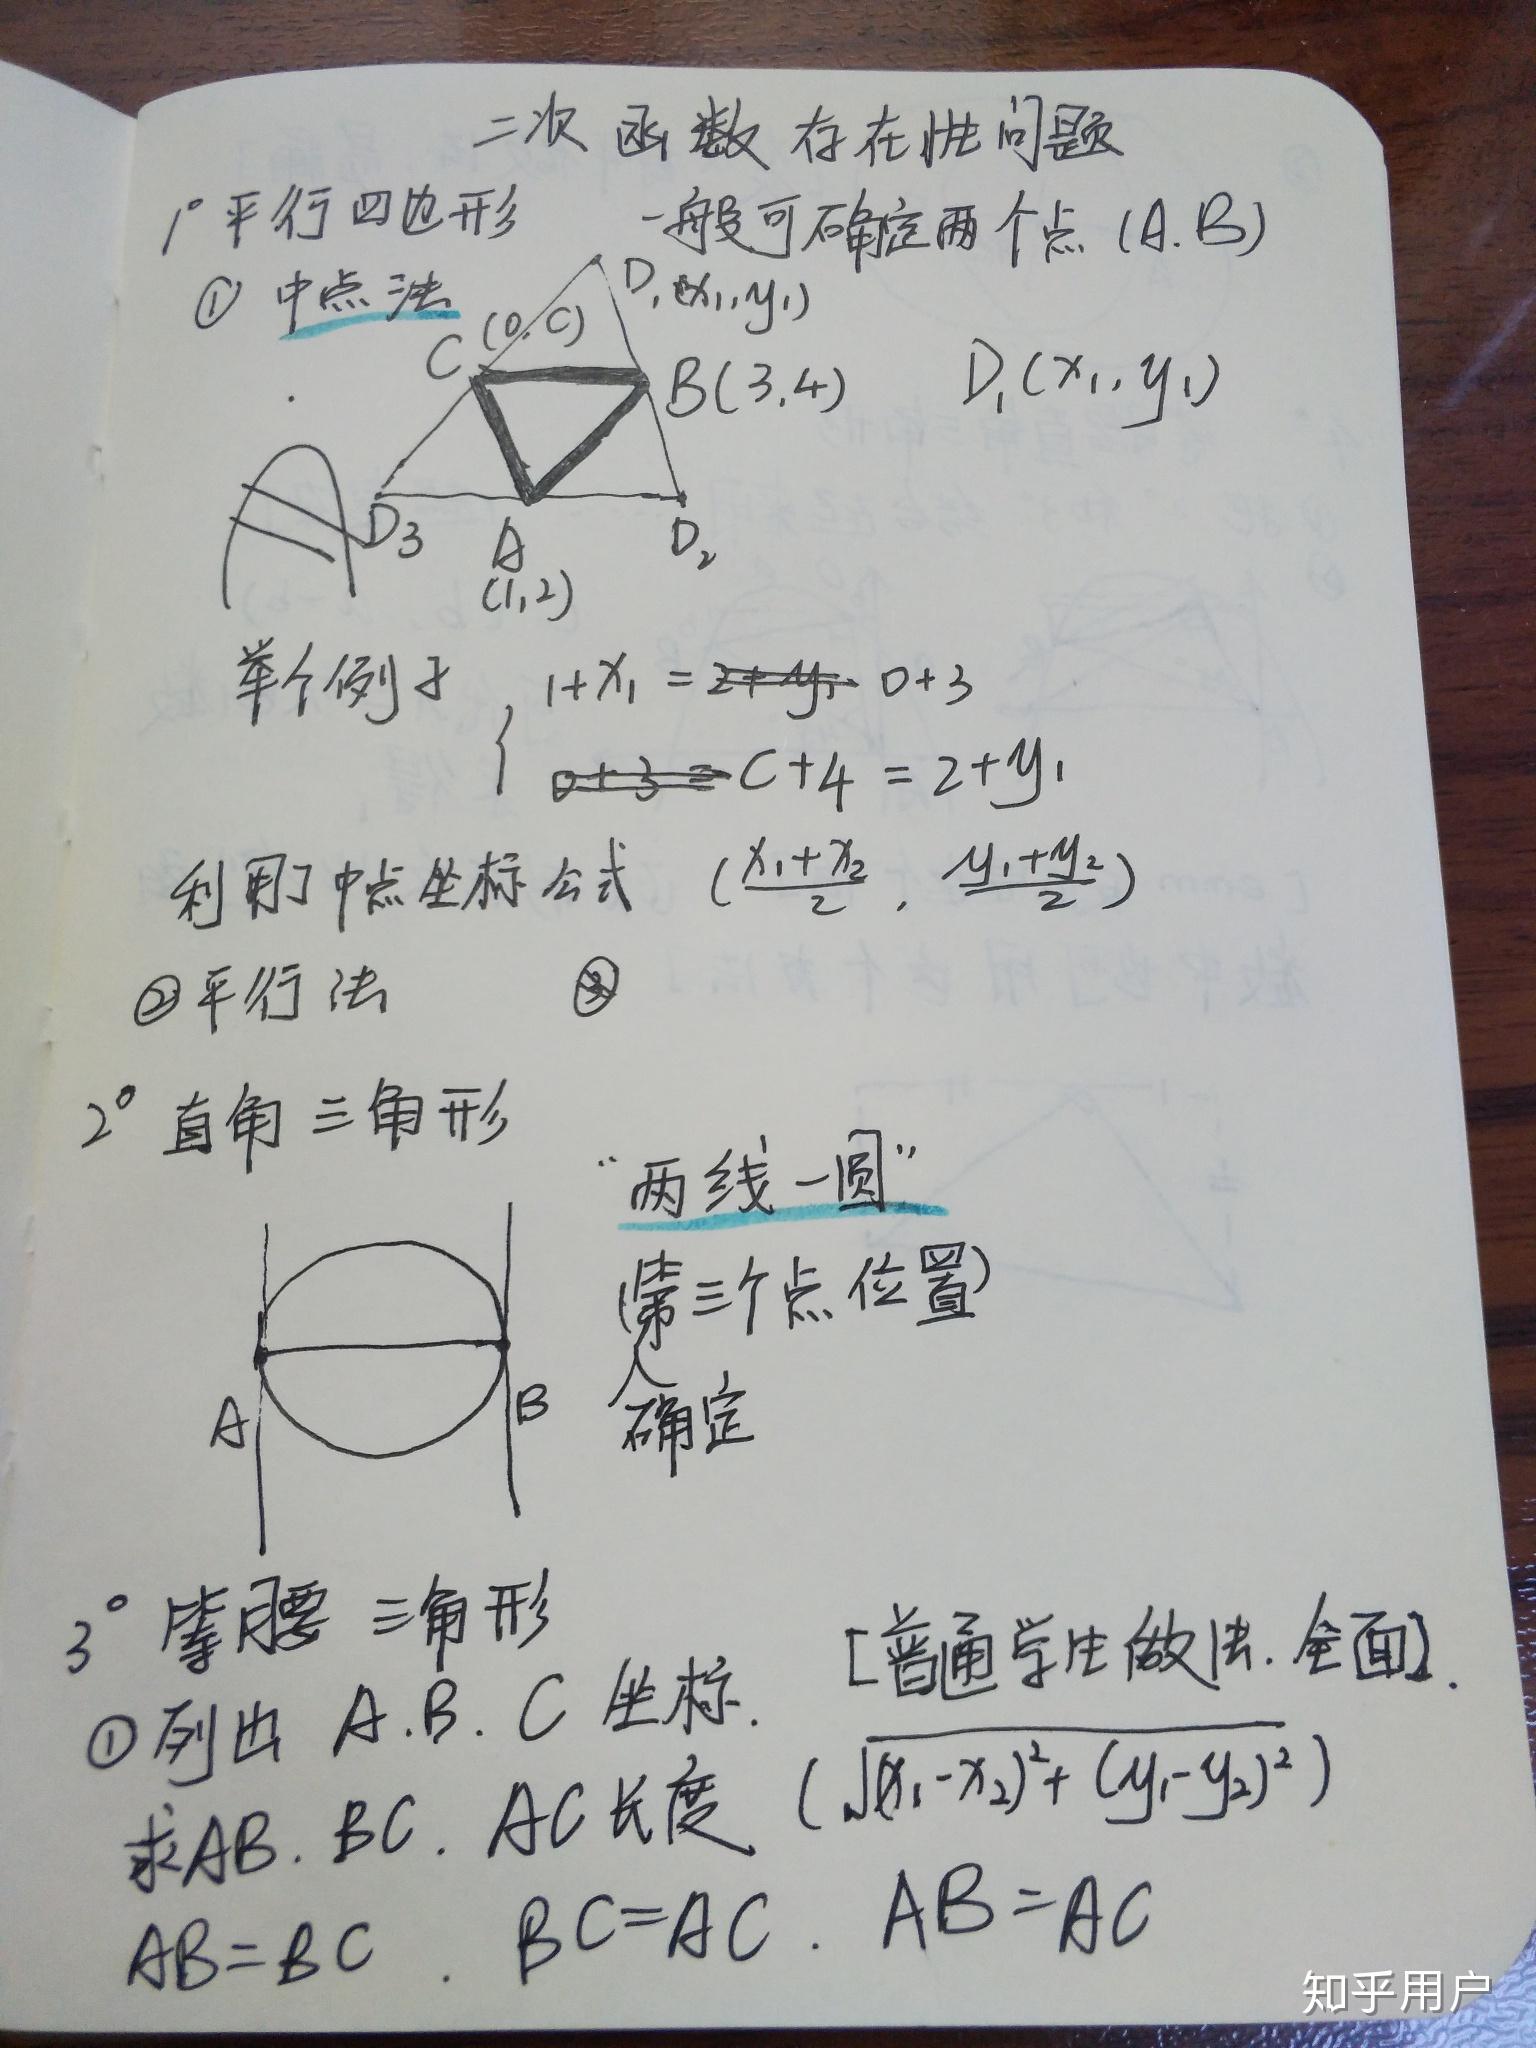 二次函数存在性问题
1° 平行四边形 一般可确定两个点 (A.B)
① 中点法
D₁ (x₁, y₁)
C (0, C)
B (3,4)
D₁ (x₁, y₁)
D₃
A
D₂
(1,2)
举个例子 { 1+x₁ = 2+y₁ 0+3
0+3 = C+4 = 2+y₁
利用了中点坐标公式 (x₁+x₂/2 , y₁+y₂/2)
②平行法 ③
2° 直角三角形
“两线一圆”
(第三个点位置)
确定
A
B
3° 等腰三角形
[普通学生做法.全面].
①列出 A.B.C 坐标.
求AB.BC.AC长度 (√(x₁-x₂)²+(y₁-y₂)²)
AB=BC . BC=AC . AB=AC
知乎用户